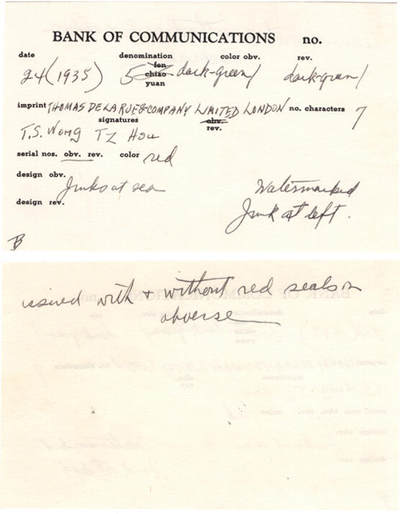 BANK OF COMMUNICATIONS no.
date denomination color obv. rev.
fen
24 (1935) 5 chiao dark-green/ dark-green/
yuan
imprint THOMAS DE LA RUE & COMPANY LIMITED LONDON no. characters 7
signatures obv.
rev.
T.S. Wong T Z Hsu
serial nos. obv. rev. color red
design obv.
Junks at sea Watermarked
design rev. Junk at left.
B
issued with + without red seals on
obverse